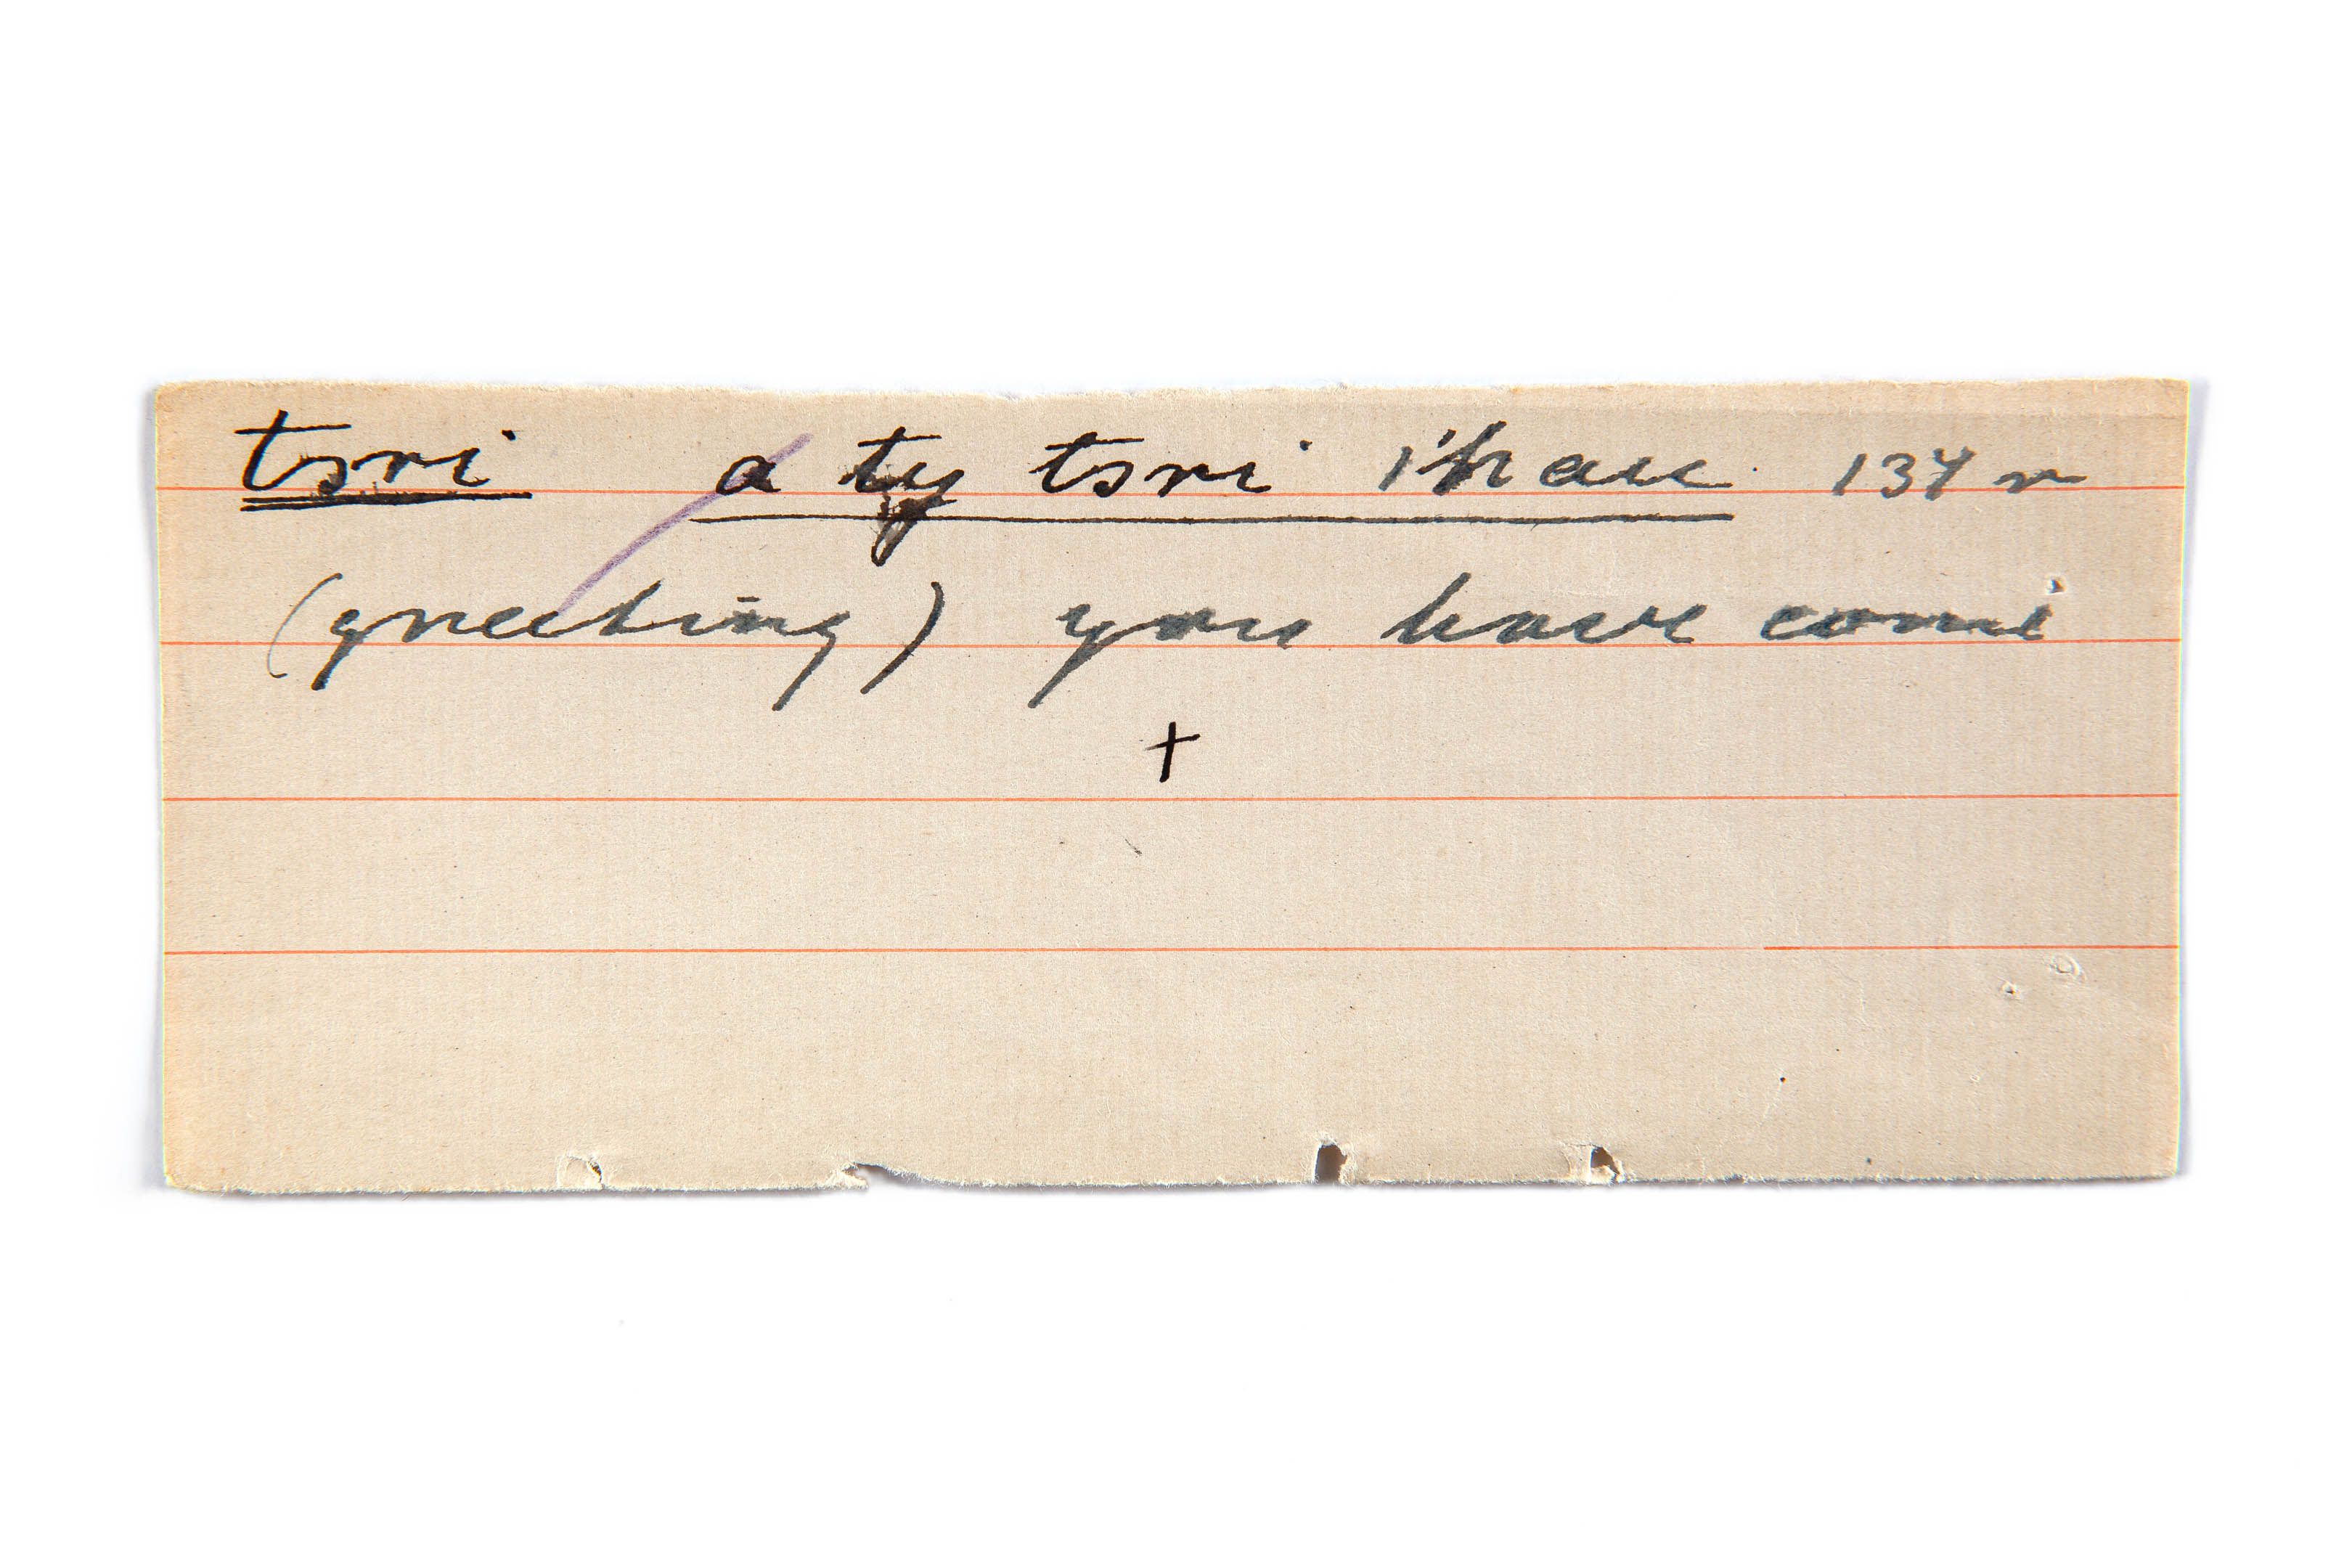 tsri a ty tsri 137 r
(greeting) you have come
+